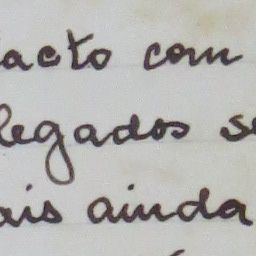 acto com
legados se
ais ainda